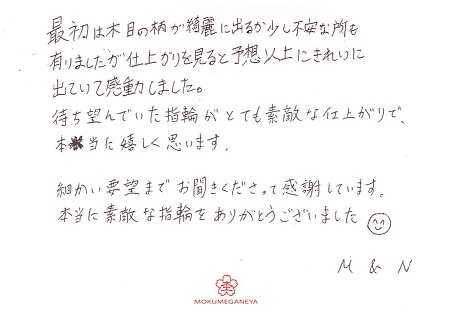 最初は木目の柄が綺麗に出るか少し不安な所も
有りましたが仕上がりを見ると予想以上にきれいに
出ていて感動しました。
待ち望んでいた指輪がとても素敵な仕上がりで、
本当に嬉しく思います。
細かい要望までお聞きくださって感謝しています。
本当に素敵な指輪をありがとうございました
M & N
MOKUMEGANEYA